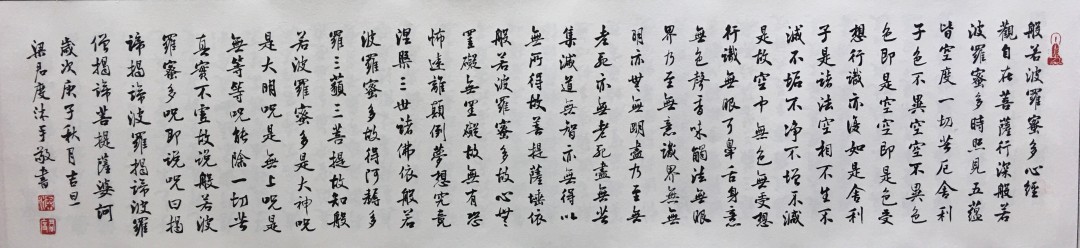 般若波羅蜜多心經
觀自在菩薩行深般若
波羅蜜多時照見五蘊
皆空度一切苦厄舍利
子色不異空空不異色
色即是空空即是色受
想行識亦復如是舍利
子是諸法空相不生不
滅不垢不淨不增不減
是故空中無色無受想
行識無眼耳鼻舌身意
無色聲香味觸法無眼
界乃至無意識界無無
明亦無無明盡乃至無
老死亦無老死盡無苦
集滅道無智亦無得以
無所得故菩提薩埵依
般若波羅蜜多故心無
罣礙無罣礙故無有恐
怖遠離顛倒夢想究竟
涅槃三世諸佛依般若
波羅蜜多故得阿耨多
羅三藐三菩提故知般
若波羅蜜多是大神呪
是大明呪是無上呪是
無等等呪能除一切苦
真實不虛故說般若波
羅蜜多呪即說呪曰揭
諦揭諦波羅揭諦波羅
僧揭諦菩提薩婆訶
歲次庚子秋月吉旦
梁君度沐手敬書